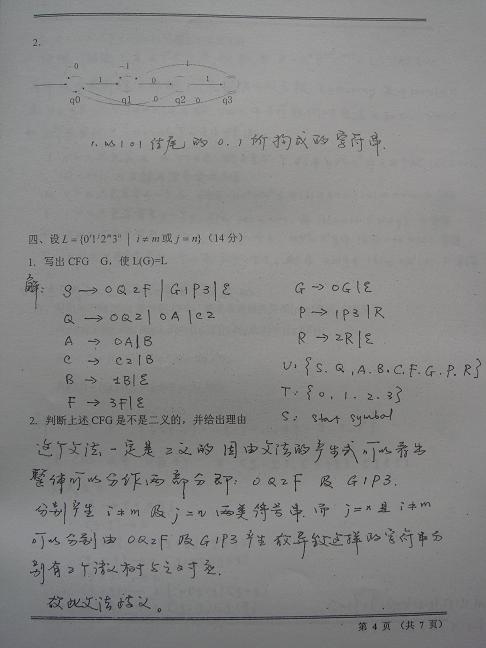 2.
0 1 1
1 0 1
q0 q1 0 q2 0 q3
1.以101结尾的0.1所构成的字符串.
四、设 L={0ⁱ1ʲ2ᵐ3ⁿ | i≠m或 j=n}(14分)
1. 写出CFG G,使L(G)=L
解:
S → 0Q2F | G1P3 | ε
Q → 0Q2 | 0A | C2
A → 0A | B
C → C2 | B
B → 1B | ε
F → 3F | ε
G → 0G | ε
P → 1P3 | R
R → 2R | ε
U: {S.Q.A.B.C.F.G.P.R}
T: {0.1.2.3}
S: start symbol
2. 判断上述CFG是不是二义的,并给出理由
这个文法一定是二义的 因由文法的产生式可以看出
整体可以分作两部分即: 0Q2F 及 G1P3.
分别产生 i≠m 及 j=n 两类符号串. 而 j=n 且 i≠m
可以分别由 0Q2F 及 G1P3 产生 故导致这样的字符串分
别有2个语义树与之对应.
故此文法二义。
第 4 页 (共 7 页)